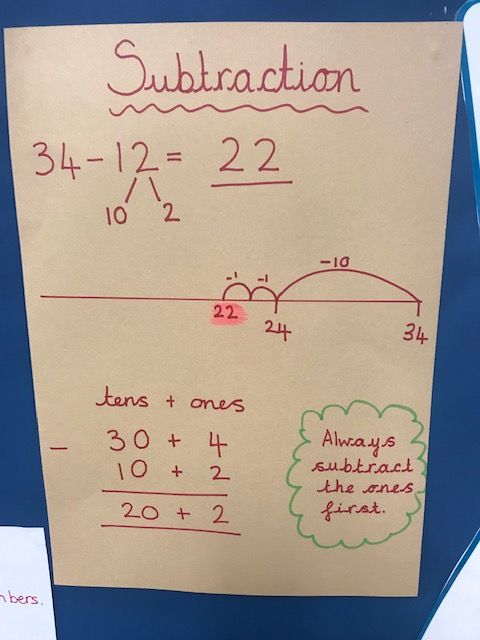 Subtraction
34 - 12 = 22
10 2
-1 -1 -10
22 24 34
tens + ones
- 30 + 4
10 + 2
20 + 2
Always
subtract
the ones
first.
nbers.